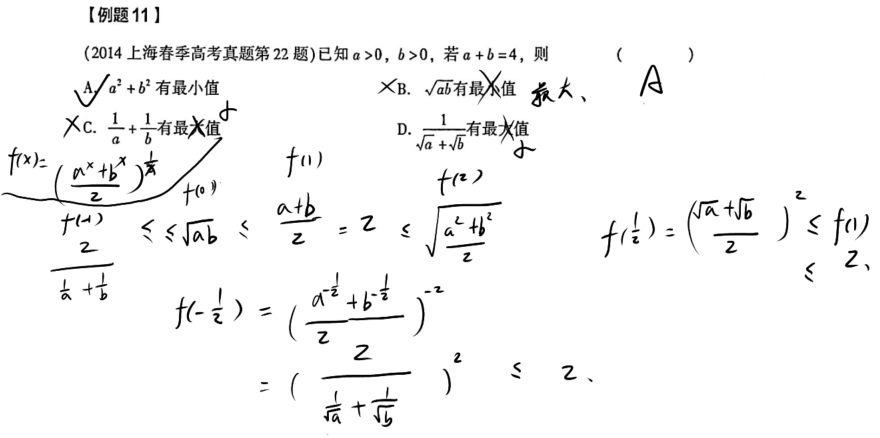 【例题11】
(2014上海春季高考真题第22题)已知a>0,b>0,若a+b=4,则 ( A )
A. a²+b²有最小值
×B. √ab有最小值 最大、
×C. 1/a+1/b有最大值 小
D. 1/(√a+√b)有最大值 小
f(x)=((a^x+b^x)/2)^(1/x)
f(-1) f(0) f(1) f(2)
2/(1/a+1/b) ≤ ≤ √ab ≤ (a+b)/2 = 2 ≤ √((a²+b²)/2)
f(1/2) = ((√a+√b)/2)² ≤ f(1)
≤ 2、
f(-1/2) = ((a^(-1/2)+b^(-1/2))/2)^(-2)
= (2/(1/√a+1/√b))² ≤ 2、